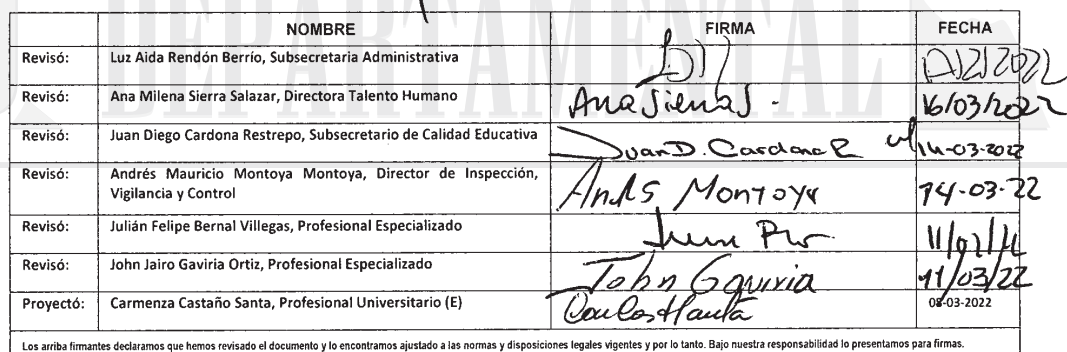 DEPARTAMENTAL
NOMBRE FIRMA FECHA
Revisó: Luz Aida Rendón Berrío, Subsecretaria Administrativa
Revisó: Ana Milena Sierra Salazar, Directora Talento Humano Ana Sierra S. 16/03/2022
Revisó: Juan Diego Cardona Restrepo, Subsecretario de Calidad Educativa Juan D. Cardona R 14-03-2022
Revisó: Andrés Mauricio Montoya Montoya, Director de Inspección,
Vigilancia y Control Andrés Montoya 14-03-22
Revisó: Julián Felipe Bernal Villegas, Profesional Especializado
Revisó: John Jairo Gaviria Ortiz, Profesional Especializado John Gaviria 11/03/22
Proyectó: Carmenza Castaño Santa, Profesional Universitario (E) 08-03-2022
Los arriba firmantes declaramos que hemos revisado el documento y lo encontramos ajustado a las normas y disposiciones legales vigentes y por lo tanto. Bajo nuestra responsabilidad lo presentamos para firmas.